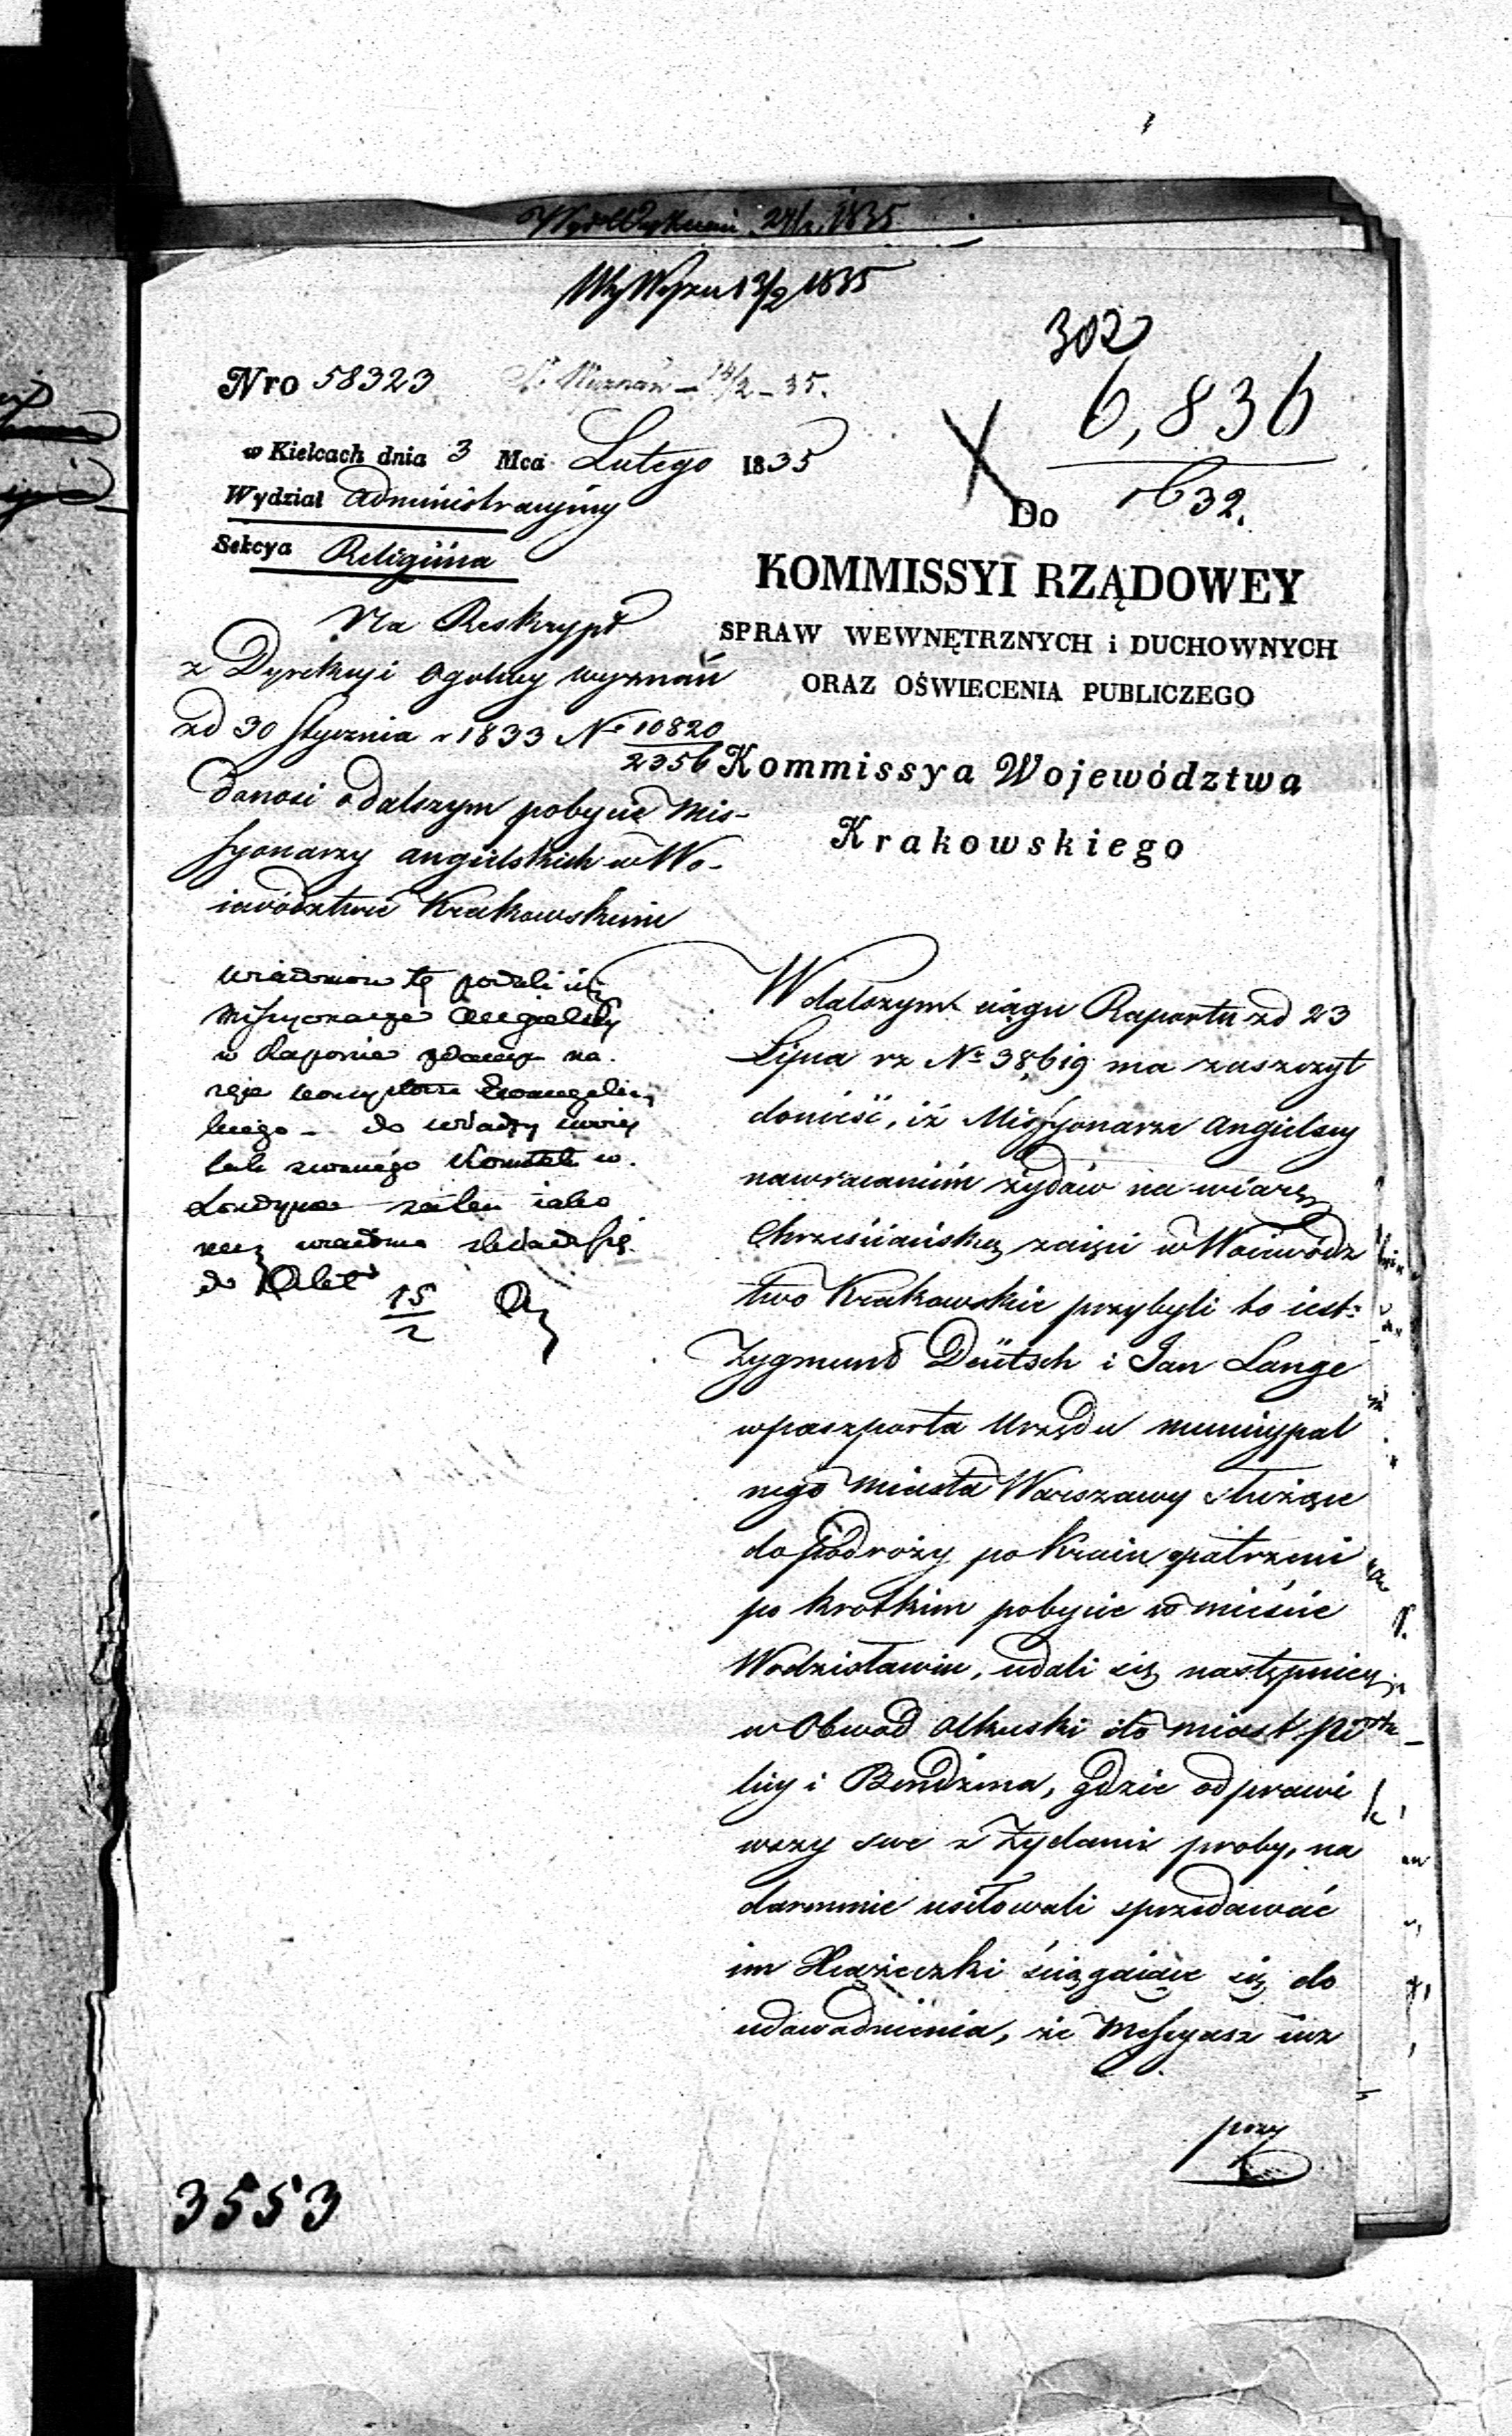 24/2 1835
13/2 1835
302
Nro 58323
14/2 – 35.
6,836
1632.
w Kielcach dnia 3 Mca Lutego 1835
Wydział Administracyiny
Sekcya Religiina
Do
KOMMISSYI RZĄDOWEY
SPRAW WEWNĘTRZNYCH i DUCHOWNYCH
ORAZ OŚWIECENIA PUBLICZEGO
Kommissya Województwa
Krakowskiego
Na Reskrypt
z Dyrekcyi Ogolney wyznań
od 30 Stycznia r 1833 No 10820
2356
donosi o dalszym pobycie Mis-
syonarzy angielskich w Wo-
iewództwie Krakowskiem
wiadomość tę podali iuż
Missyonarze Angielscy
w Raporcie
do władzy swoiey
tak zwanego Komitetu w
Londynie zatem iako
rzecz wiadoma składa się
do Akt
15
2
W dalszym ciągu Raportu od 23
Lipca rz No 38,619 ma zaszczyt
donieść, iż Missyonarze angielscy
nawracaniem żydów na wiarę
Chrześciańską zaięci w Woiewódz
two Krakowskie przybyli to iest:
Zygmund Deütsch i Jan Lange
w paszporta Urzędu municypal
nego miasta Warszawy służące
do podroży po Kraiu opatrzeni
po krotkim pobycie w mieście
Wodzisławiu, udali się następnie
w Obwod Olkuski do miast Pi
licy i Bendzina, gdzie odprawi
wszy swe z Żydami proby, na
daremnie usiłowali sprzedawać
im Xiążeczki ściągaiące się do
udowodnienia, że Messyasz iuz
przy
3553